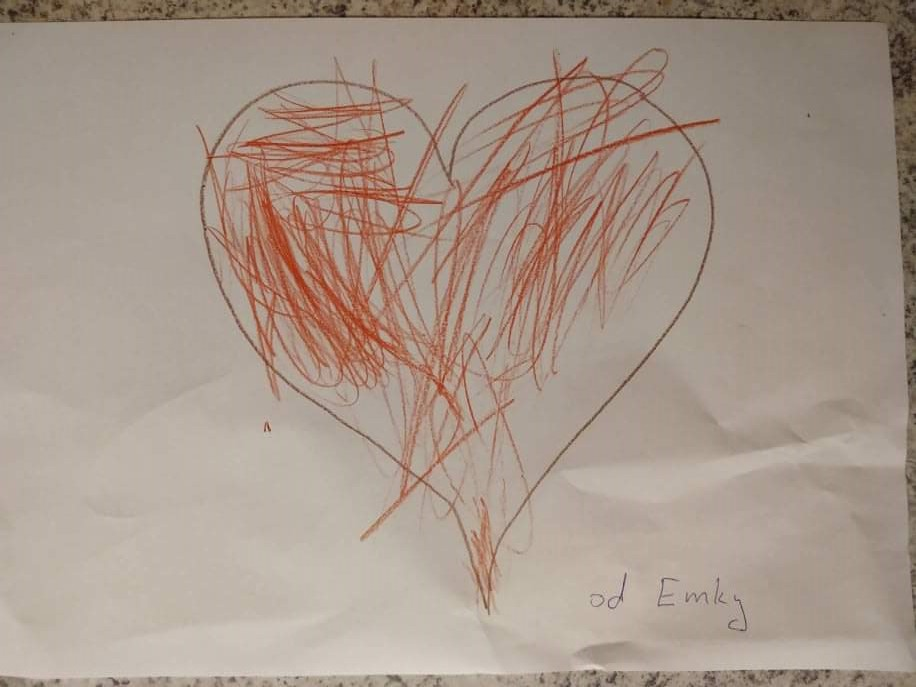 od Emky